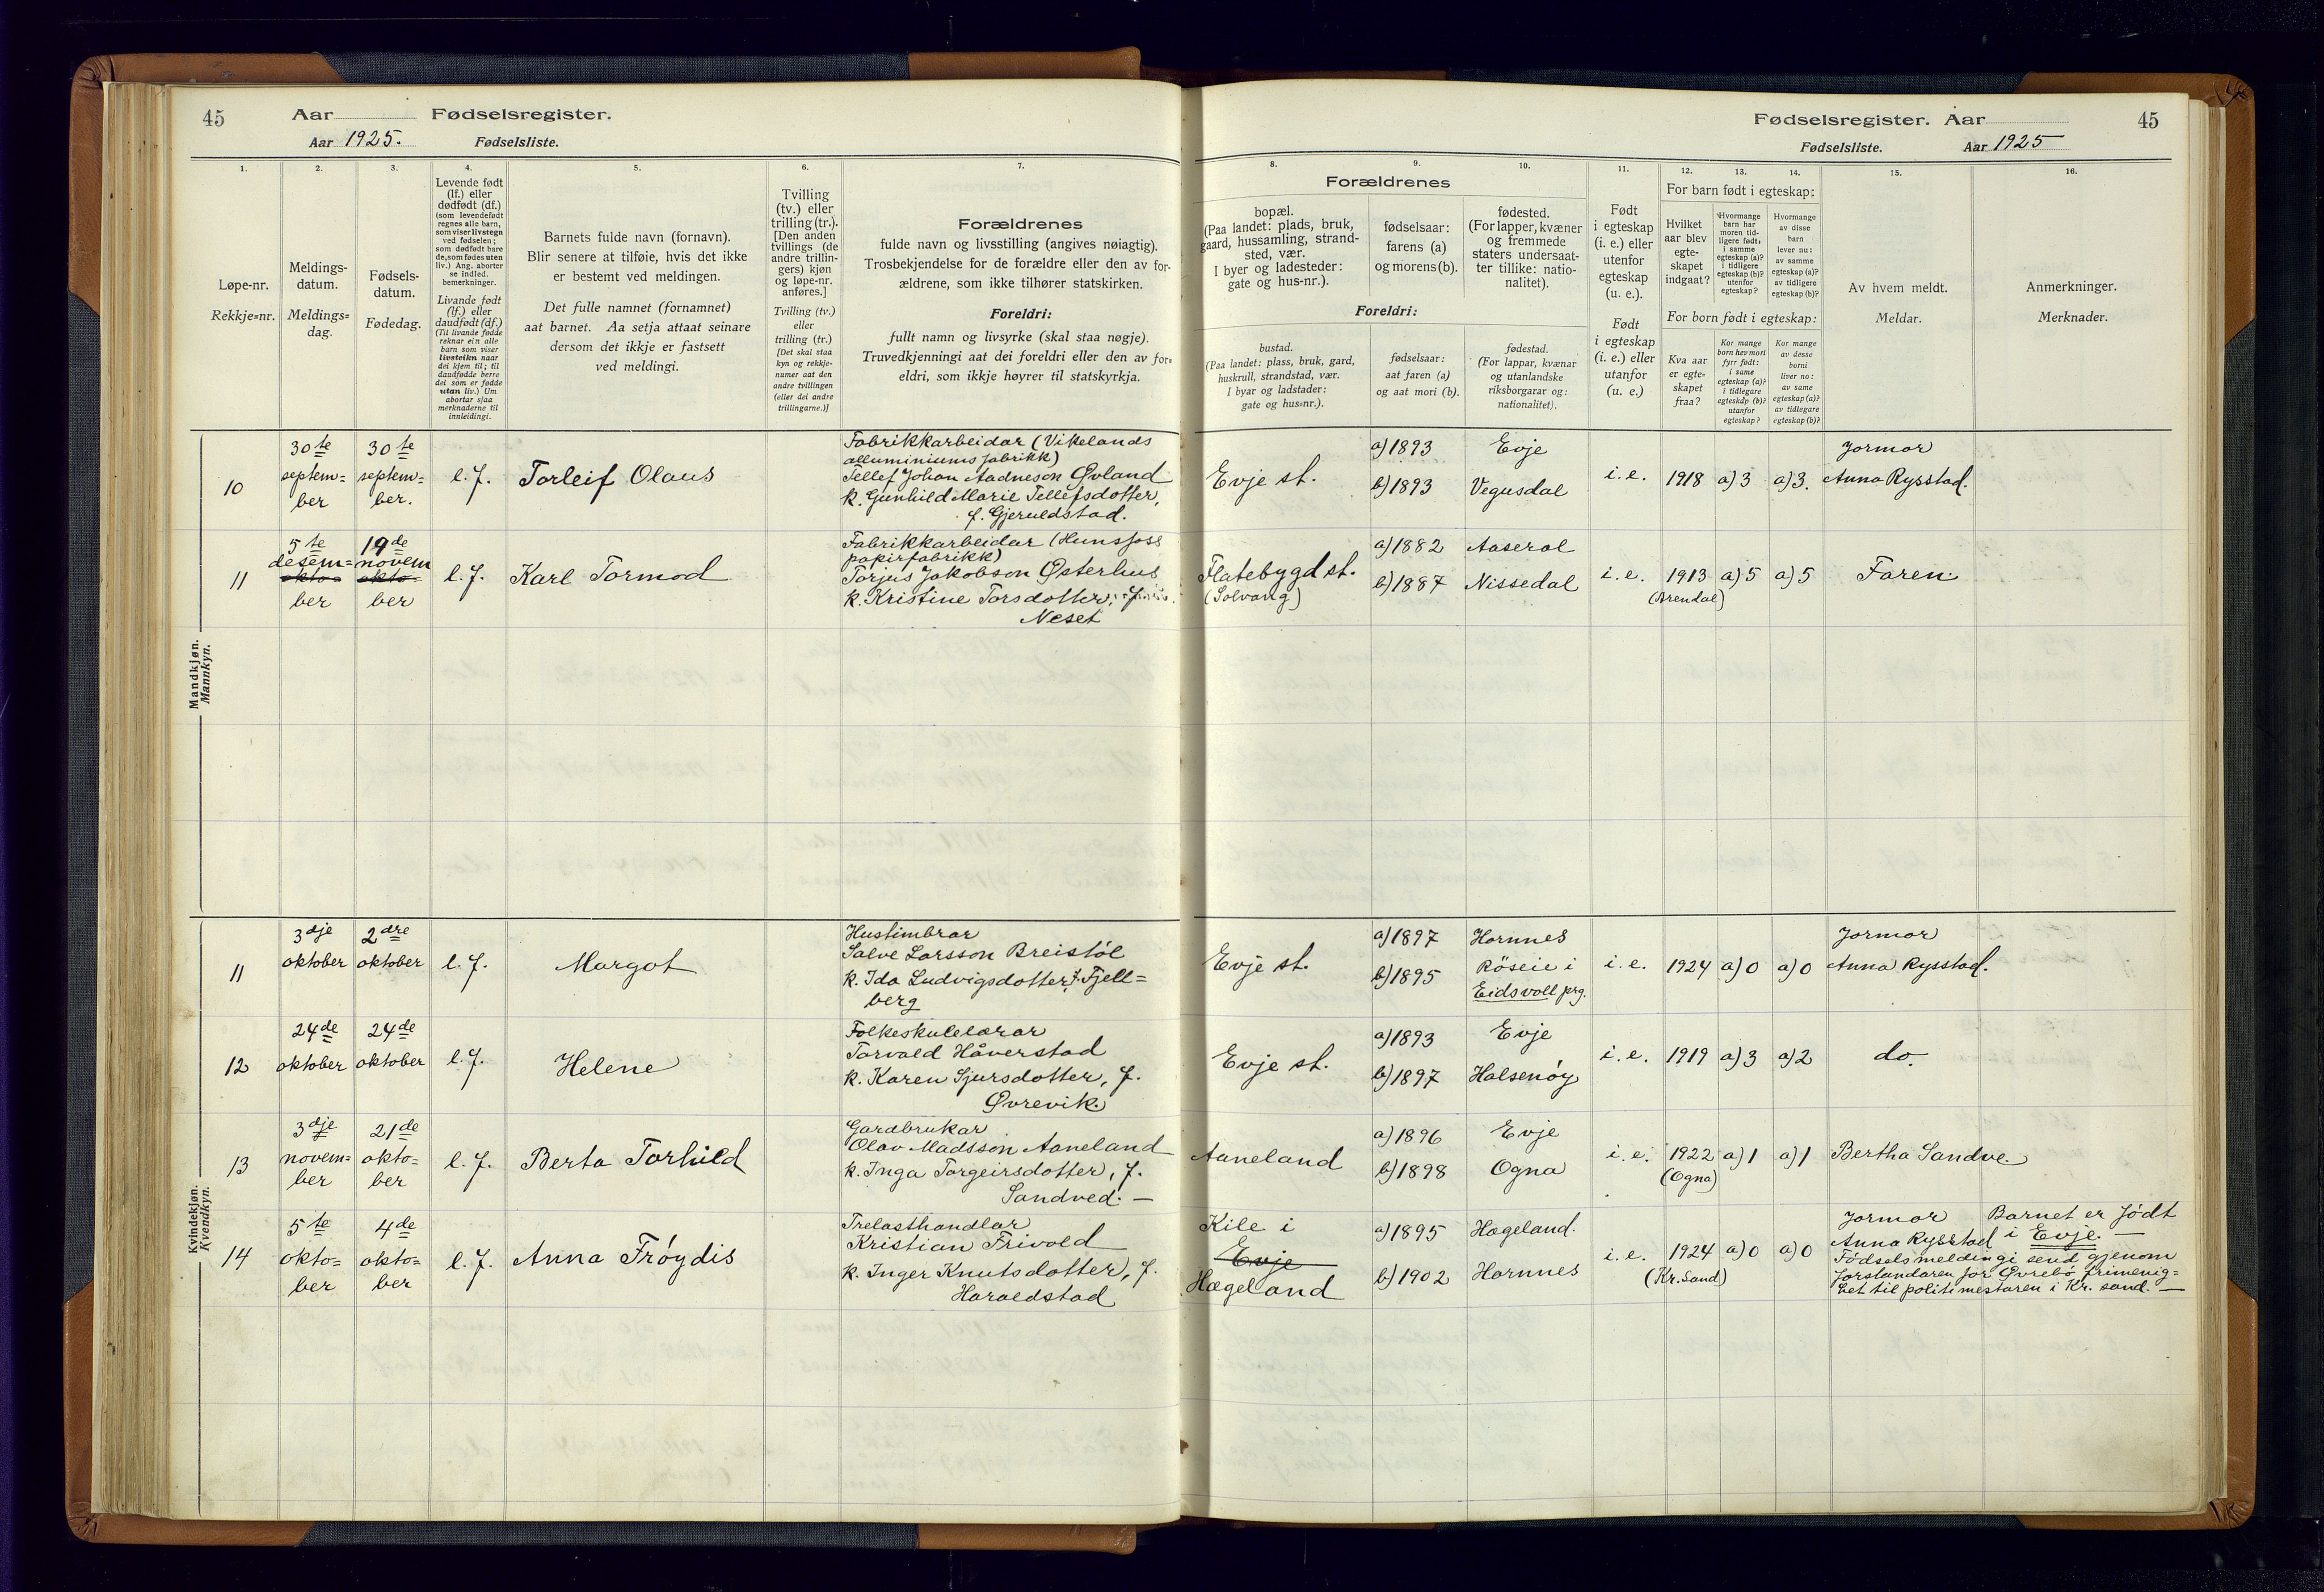 45
Aar Fødselsregister.
Aar 1925. Fødselsliste.
1.
2.
3.
4.
5.
6.
7.
Løpe-nr.
Rekkje=nr.
Meldings-
datum.
Meldings=
dag.
Fødsels-
datum.
Fødedag.
Levende født
(lf.) eller
dødfødt (df.)
(som levendefødt
regnes alle barn,
som viser livstegn
ved fødselen;
som dødfødt bare
de, som fødes uten
liv.) Ang. aborter
se indled.
bemerkninger.
Livande født
(lf.) eller
daudfødt (df.)
(Til livande fødde
reknar ein alle
barn som viser
livsteikn naar
dei kjem til; til
daudfødde berre
dei som er fødde
utan liv.) Um
abortar sjaa
merknaderne til
innleidingi.
Barnets fulde navn (fornavn).
Blir senere at tilføie, hvis det ikke
er bestemt ved meldingen.
Det fulle namnet (fornamnet)
aat barnet. Aa setja attaat seinare
dersom det ikkje er fastsett
ved meldingi.
Tvilling
(tv.) eller
trilling (tr.).
[Den anden
tvillings (de
andre trillin-
gers) kjøn
og løpe-nr.
anføres.]
Tvilling (tv.)
eller
trilling (tr.)
[Det skal staa
kyn og rekkje-
numer aat den
andre tvillingen
(eller dei andre
trillingarne.)]
Forældrenes
fulde navn og livsstilling (angives nøiagtig).
Trosbekjendelse for de forældre eller den av for-
ældrene, som ikke tilhører statskirken.
Foreldri:
fullt namn og livsyrke (skal staa nøgje).
Truvedkjenningi aat dei foreldri eller den av for=
eldri, som ikkje høyrer til statskyrkja.
Mandkjøn.
Mannkyn.
10
30te
septem=
ber
30te
septem=
ber.
l.f.
Torleif Olaus
Fabrikkarbeidar (Vikelands
alluminiums fabrikk)
Tellef Johan Aadneson Øvland
k. Gunhild Marie Tellefsdotter,
f. Gjeruldstad.
11
5te
desem=
okto=
ber
19de
novem
okto=
ber
l.f.
Karl Tormod
Fabrikkarbeidar (Hunsfoss
papirfabrikk)
Torjus Jakobson Østerhus
k. Kristine Torsdotter, f.
Neset
Kvindekjøn.
Kvendkyn.
11
3dje
oktober
2dre
oktober
l.f.
Margot
Hustimbrar
Salve Larsson Breistøl
k. Ida Ludvigsdotter, f. Fjell=
berg
12
24de
oktober
24de
oktober
l.f.
Helene
Folkeskulelærar
Torvald Håverstad
k. Karen Sjursdotter, f.
Øvrevik.
13
3dje
novem=
ber
21de
okto=
ber
l.f.
Berta Torhild
Gardbrukar
Olav Madsson Aaneland
k. Inga Torgeirsdotter, f.
Sandved. —
14
5te
okto=
ber
4de
okto=
ber
l.f.
Anna Frøydis
Trelasthandlar
Kristian Frivold
k. Inger Knutsdotter, f.
Haraldstad
Fødselsregister. Aar
45
Fødselsliste. Aar 1925
8.
9.
10.
11.
12.
13.
14.
15.
16.
Forældrenes
bopæl.
(Paa landet: plads, bruk,
gaard, hussamling, strand-
sted, vær.
I byer og ladesteder:
gate og hus-nr.).
fødselsaar:
farens (a)
og morens (b).
fødested.
(For lapper, kvæner
og fremmede
staters undersaat-
ter tillike: natio-
nalitet).
Foreldri:
bustad.
(Paa landet: plass, bruk, gard,
huskrull, strandstad, vær.
I byar og ladstader:
gate og hus=nr.).
fødselsaar:
aat faren (a)
og aat mori (b).
fødestad.
(For lappar, kvænar
og utanlandske
riksborgarar og:
nationalitet).
Født
i egteskap
(i. e.) eller
utenfor
egteskap
(u. e.).
Født
i egteskap
(i. e.) eller
utanfor
egteskap
(u. e.)
For barn født i egteskap:
Hvilket
aar blev
egte-
skapet
indgaat?
Hvormange
barn har
moren tid-
ligere født:
i samme
egteskap (a)?
i tidligere
egteskap (b)?
utenfor
egteskap?
Hvormange
av disse
barn
lever nu:
av samme
egteskap (a)?
av tidligere
egteskap (b)?
For born født i egteskap:
Kva aar
er egte=
skapet
fraa?
Kor mange
born hev mori
fyrr født:
i same
egteskap (a)?
i tidlegare
egteskap (b)?
utanfor
egteskap?
Kor mange
av desse
borni
liver no:
av same
egteskap (a)?
av tidlegare
egteskap (b)?
Av hvem meldt.
Meldar.
Anmerkninger.
Merknader.
Evje st.
a) 1893
b) 1893
Evje
Vegusdal
i. e.
1918
a) 3
a) 3.
Jormor
Anna Rysstad.
Flatebygd st.
(Solvang)
a) 1882
b) 1887
Aaseral
Nissedal
i. e.
1913
(Arendal)
a) 5
a) 5
Faren.
Evje st.
a) 1897
b) 1895
Hornnes
Røseie i
Eidsvoll prg.
i. e.
1924
a) 0
a) 0
Jormor
Anna Rysstad.
Evje st.
a) 1893
b) 1897
Evje
Halsenøy
i. e.
1919
a) 3
a) 2
do.
Aaneland
a) 1896
b) 1898
Evje
Ogna
i. e.
1922
(Ogna)
a) 1
a) 1
Bertha Sandve.
Kile i
Evje
Hægeland
a) 1895
b) 1902
Hægeland.
Hornnes
i. e.
1924
(Kr.Sand)
a) 0
a) 0
Jormor Barnet er født
Anna Rysstad i Evje. —
Fødselsmeldingi send gjenom
forstandaren for Øvrebø frimenig=
het til politimestaren i Kr. sand. —